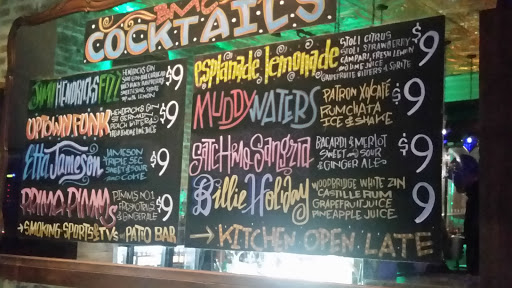 BMC
COCKTAILS
JIMI HENDRICKS FIZZ
$9
UPTOWN FUNK
HENDRICKS GIN
ST GERMAIN
PEACH BITTERS
$9
Etta Jameson
JAMESON
TRIPLE SEC
SWEET & SOUR
$9
PRIMA PIMM'S
PIMMS NO.1
& GINGER ALE
$9
→ SMOKING SPORTS & TVs IN PATIO BAR
esplanade lemonade
STOLI CITRUS
STOLI STRAWBERRY
CAMPARI, FRESH LEMON
AND LIME JUICE
GRAPEFRUIT BITTERS & SPRITE
$9
MUDDY WATERS
PATRON XO CAFÉ
RUMCHATA
ICE & SHAKE
$9
Satchmo Sangria
BACARDI & MERLOT
SWEET AND SOUR
& GINGER ALES
$9
Billie Holiday
WOODBRIDGE WHITE ZIN
CASTILLE RUM
GRAPEFRUIT JUICE
PINEAPPLE JUICE
$9
→ KITCHEN OPEN LATE